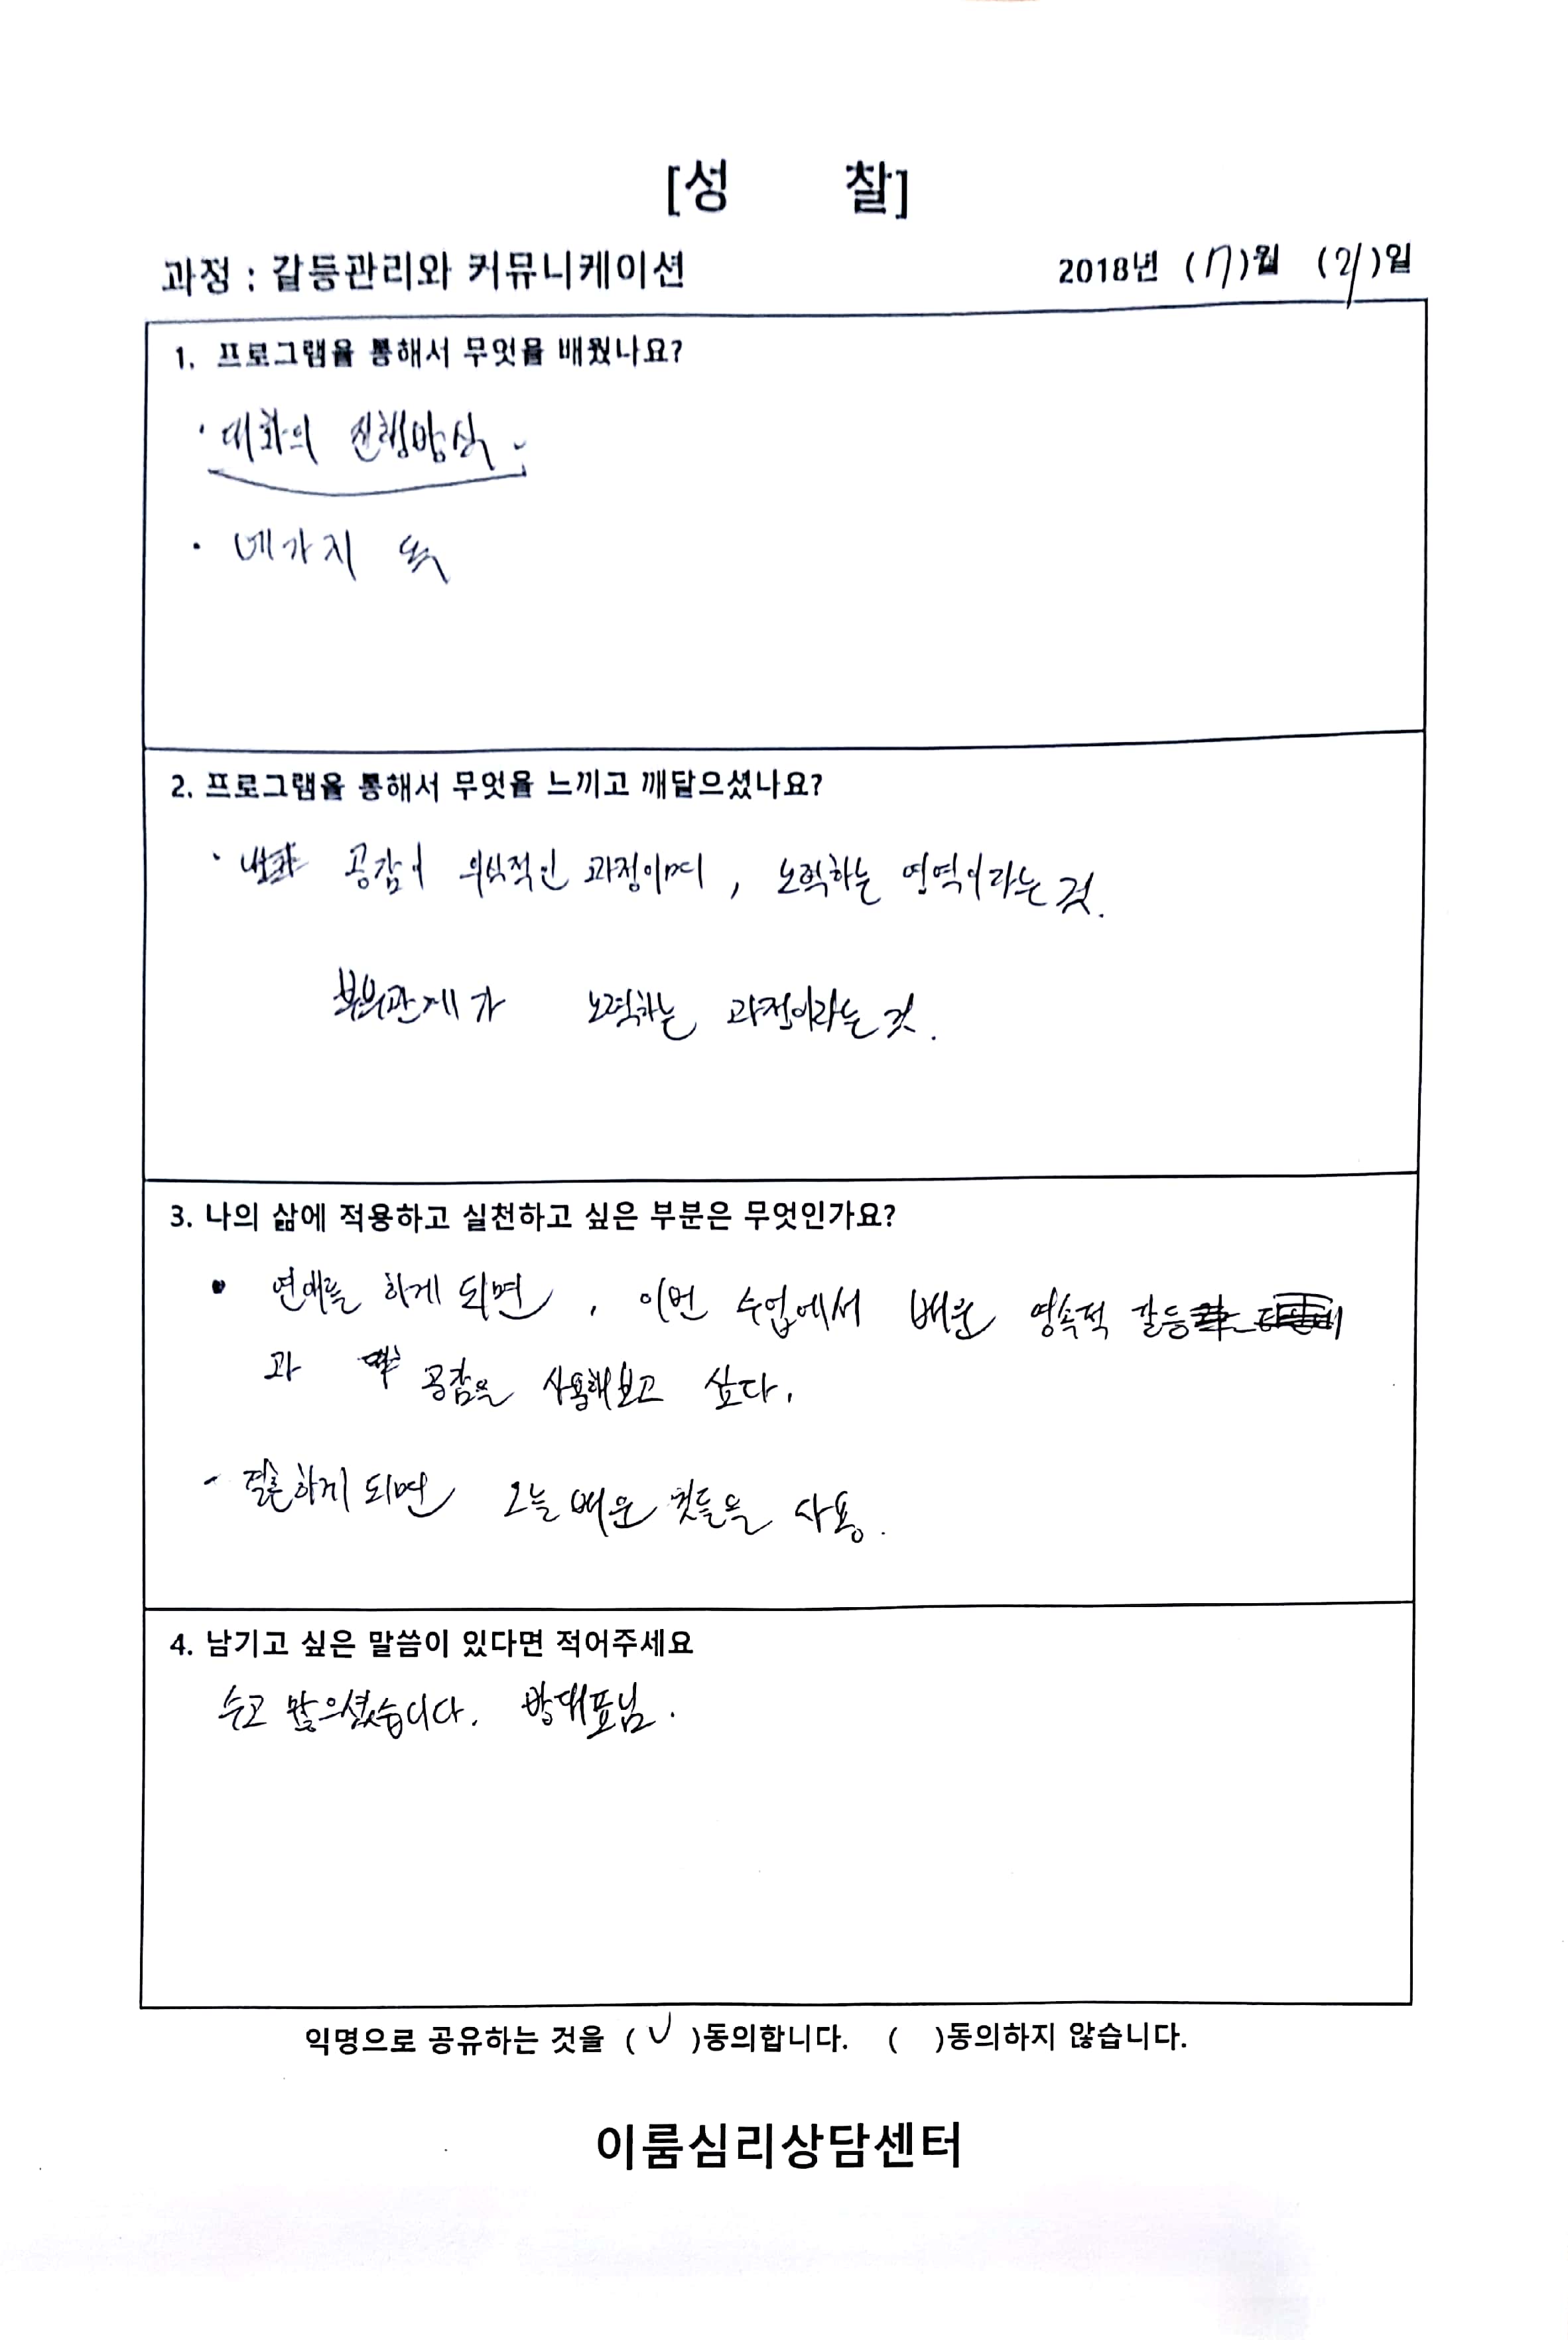 [성 찰]
과정 : 갈등관리와 커뮤니케이션 2018년 (7)월 (21)일
1. 프로그램을 통해서 무엇을 배웠나요?
· 대화의 진행방식.
· 네가지 독
2. 프로그램을 통해서 무엇을 느끼고 깨달으셨나요?
· 공감이 의식적인 과정이며, 노력하는 영역이라는 것.
부부관계가 노력하는 과정이라는 것.
3. 나의 삶에 적용하고 실천하고 싶은 부분은 무엇인가요?
· 연애를 하게 되면, 이번 수업에서 배운 영속적 갈등
과 공감을 사용해보고 싶다.
- 결혼하게 되면 오늘 배운 것들을 사용.
4. 남기고 싶은 말씀이 있다면 적어주세요
수고 많으셨습니다. 박대표님.
익명으로 공유하는 것을 ( V )동의합니다. ( )동의하지 않습니다.
이룸심리상담센터